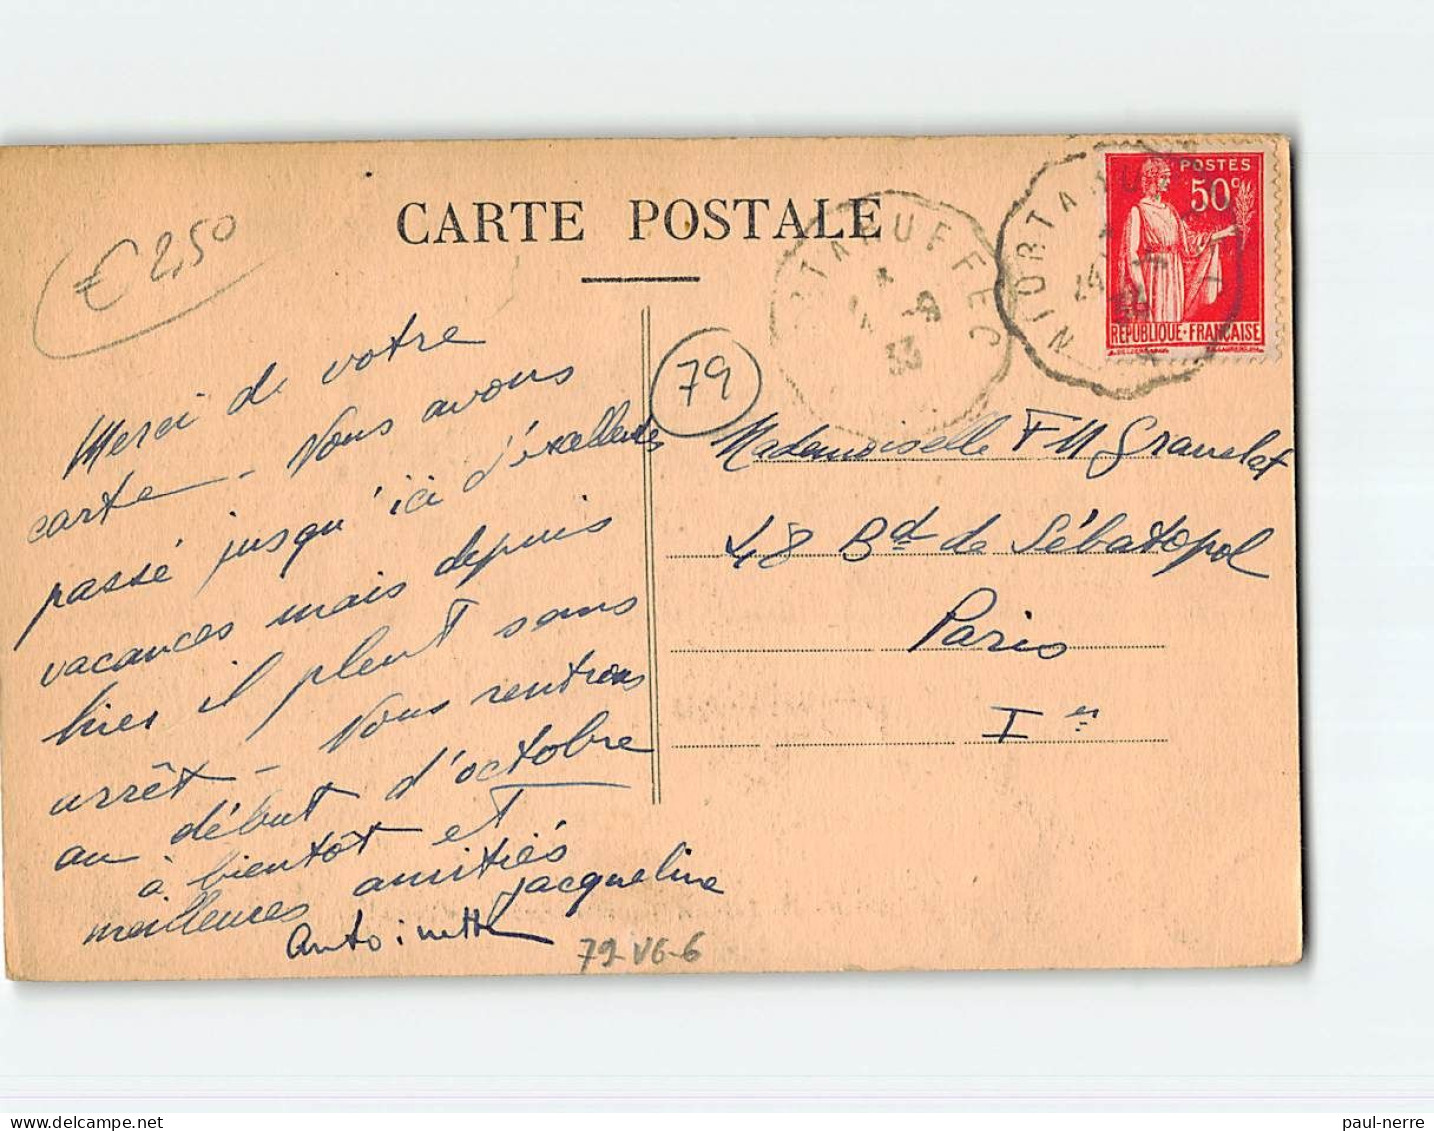 CARTE POSTALE
€ 2,50
79
POSTES
50c
REPUBLIQUE-FRANÇAISE
NIORT A RUFFEC
24
NIORT A RUFFEC
33
Merci de votre
carte - Nous avons
passé jusqu'ici d'excellentes
vacances mais depuis
hier il pleut sans
arrêt - Nous rentrons
au début d'octobre
à bientôt et
meilleures amitiés
Jacqueline
Antoinette
Mademoiselle F M Granelet
48 Bd de Sébatopol
Paris
Ier
79-V6-6
paul-nerre